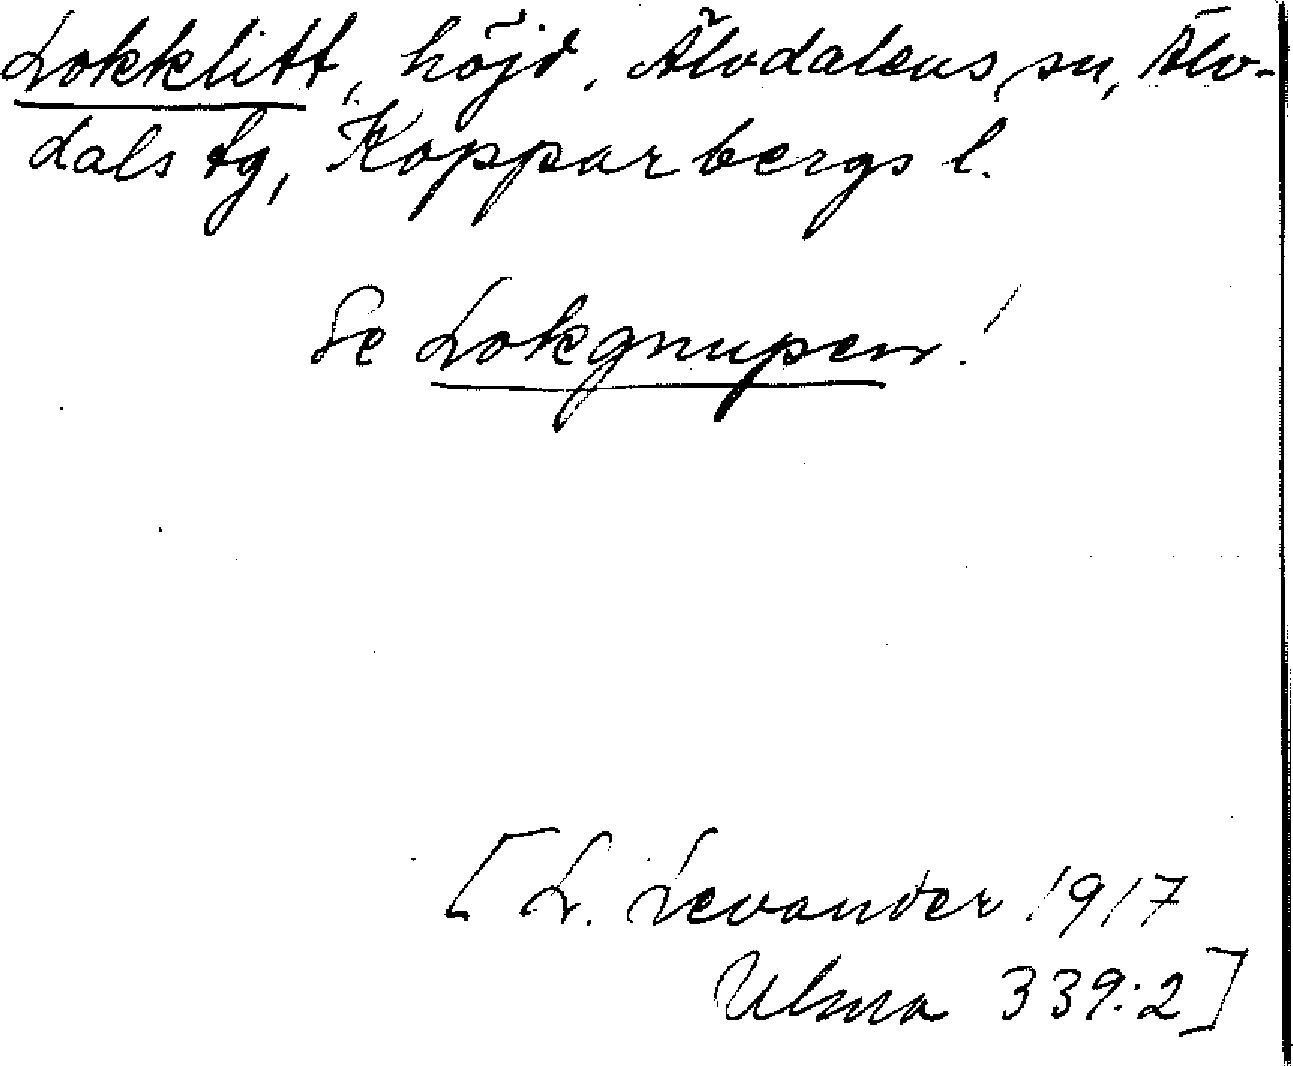 Lokklitt, höjd, Älvdalens sn, Älv-
dals tg, Kopparbergs l.
Se Lokgnupen!
[L. Levander 1917
Ulma 339:2]